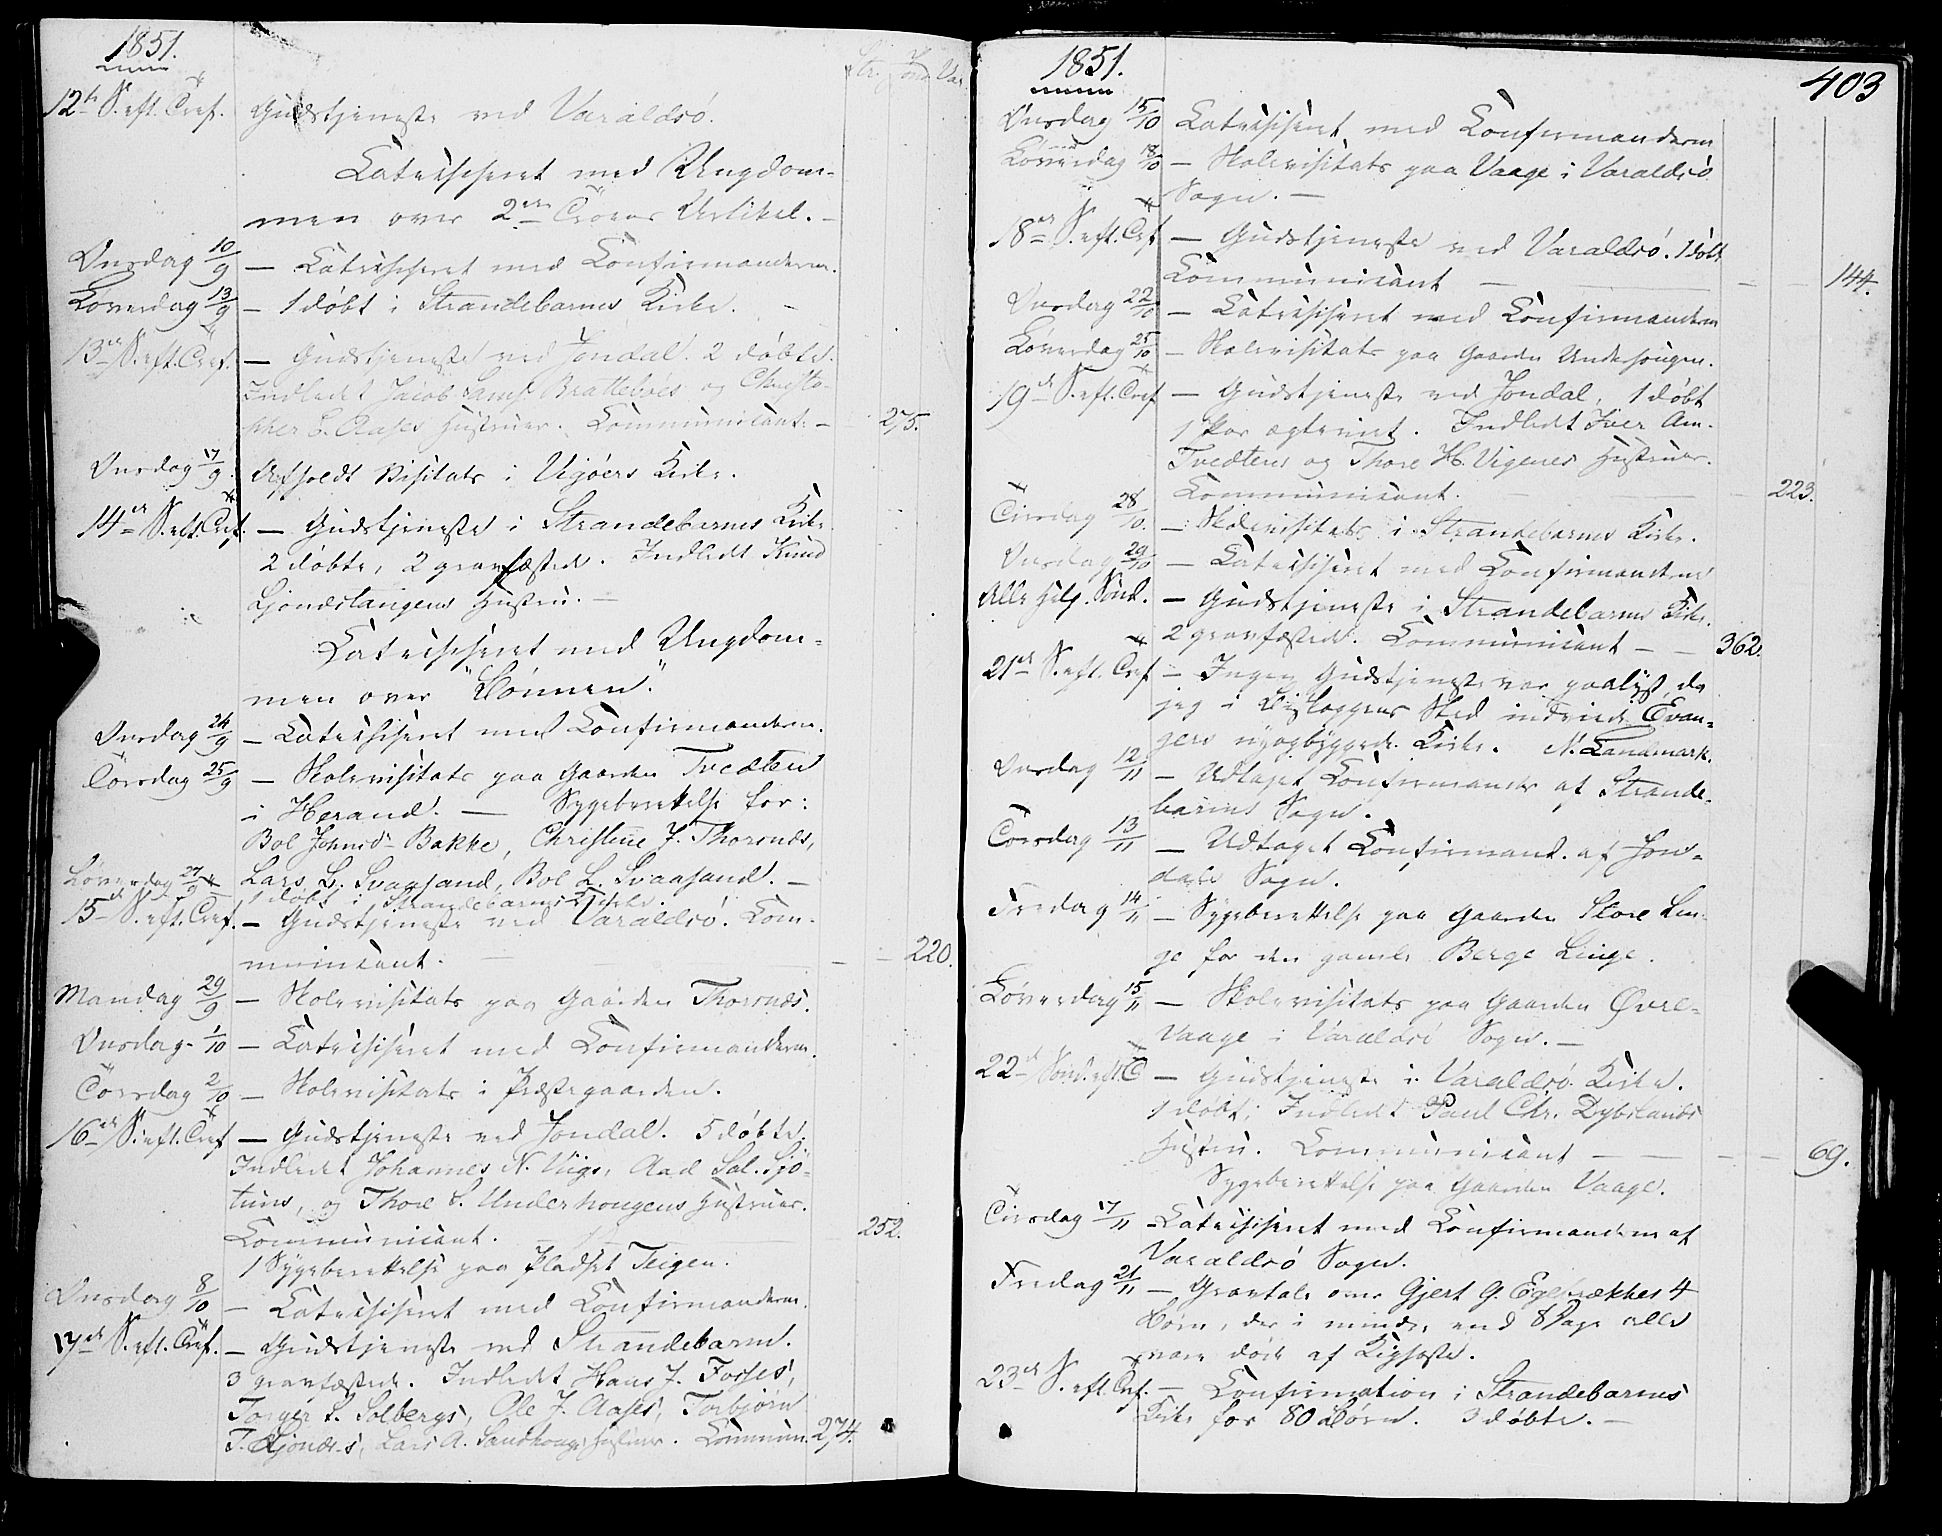 1851.
Str. Jond. Var.
12te S. eft. Tref. Gudstjeneste ved Varaldsö.
Catechiseret med Ungdom-
men over 2den Troens Artikel. -
Onsdag 10/9 - Catechiseret med Confirmanderne.
Löverdag 13/9 - 1 döbt i Strandebarms Kirke. -
13de S. eft. Tref. - Gudstjeneste ved Jondal. 2 döbte.
Indledet Jacob Bratteböes og Christo-
pher L. Aases Hustruer. Communicant. - 275.
Onsdag 17/9. Afholdt Visitats i Vigöers Kirke.
14de S. eft. Tref. - Gudstjeneste i Strandebarms Kirke
2 döbte, 2 gravfæstede. Indledt Knud
Ljondstangens Hustru. -
Catechiseret med Ungdom-
men over "Bönnen".
Onsdag 24/9 - Catechiseret med Confirmanderne.
Torsdag 25/9 - Skolevisitats paa Gaarden Tvedten
i Herand. - Sygeberettelse for:
Bol Johnsd. Bakke, Christine J. Thorsnæs,
Löverdag 27/9 Lars L. Svaasand, Bol L. Svaasand. -
1 döbt i Strandebarms Kirke.
15de S. eft. Tref. - Gudstjeneste ved Varaldsö. Com-
municant. - 220.
Mandag 29/9 - Skolevisitats paa Gaarden Thorsnæs.
Onsdag 1/10 - Catechiseret med Confirmanderne.
Torsdag 2/10 - Skolevisitats i Præstegaarden.
16de S. eft. Tref - Gudstjeneste ved Jondal. 5 döbte.
Indledet Johannes N. Viigs, Aad Sal. Sjö-
tuns, og Thore S. Underhougens Hustruer.
Communicant. - 252.
1 Sygeberettelse paa Pladset Teigen.
Onsdag 8/10 - Catechiseret med Confirmanderne.
17de S. eft. Tref. - Gudstjeneste ved Strandebarm.
3 gravfæstede. Indledt Hans J. Fosses,
Torger S. Solbergs, Ole J. Aases, Torbjörn
T. Ljonds, Lars A. Sandhougs Hustruer. Commun. 274.
403
1851.
Onsdag 15/10 Catechiseret med Confirmanderne
Löverdag 18/10 - Skolevisitats paa Vaage i Varaldsö
Sogn. -
18de S. eft. Tref - Gudstjeneste ved Varaldsö. 1 döbt
Communicant - 144.
Onsdag 22/10 - Catechiseret med Confirmanderne
Löverdag 25/10 - Skolevisitats paa Gaarden Underhougen.
19de S. eft. Tref - Gudstjeneste ved Jondal, 1 döbt
1 Par ægteviet. Indledt Iver Am.
Tvedtens og Thore H. Vigenes Hustruer.
Communicant. - 223.
Tirsdag 28/10. - Skolevisitats i Strandebarms Kirke.
Onsdag 29/10 - Catechiseret med Confirmanderne
Alle Helg. Sönd. - Gudstjeneste i Strandebarms Kirke.
2 gravfæstede. Communicant - 362.
21de S. eft. Tref - Ingen Gudstjeneste var paalyst, da
jeg i Biskoppens Sted indviede Evan-
gers nyopbyggede Kirke. N. Landmark.
Onsdag 12/11 - Udtaget Confirmander af Strande-
barms Sogn.
Torsdag 13/11 - Udtaget Confirmand. af Jon-
dals Sogn.
Fredag 14/11 - Sygeberettelse paa Gaarden Store Lin-
ge for den gamle Berge Linge.
Löverdag 15/11 - Skolevisitats paa Gaarden Øvre-
Vaage i Varaldsö Sogn. -
22de Sönd. eft. T - Gudstjeneste i Varaldsö Kirke.
1 döbt. Indledt Paul Chr. Dybslands
Hustru. Communicant - 69.
Sygeberettelse paa Gaarden Vaage.
Tirsdag 17/11 - Catechiseret med Confirmanderne af
Varaldsö Sogn.
Fredag 21/11 - Gravtale over Gjert G. Egerækkes 4
Börn, der i mindre end 8 Dage alle
vare döde af
23de S. eft. Tref. - Confirmation i Strandebarms
Kirke for 80 Börn. 3 döbte. -